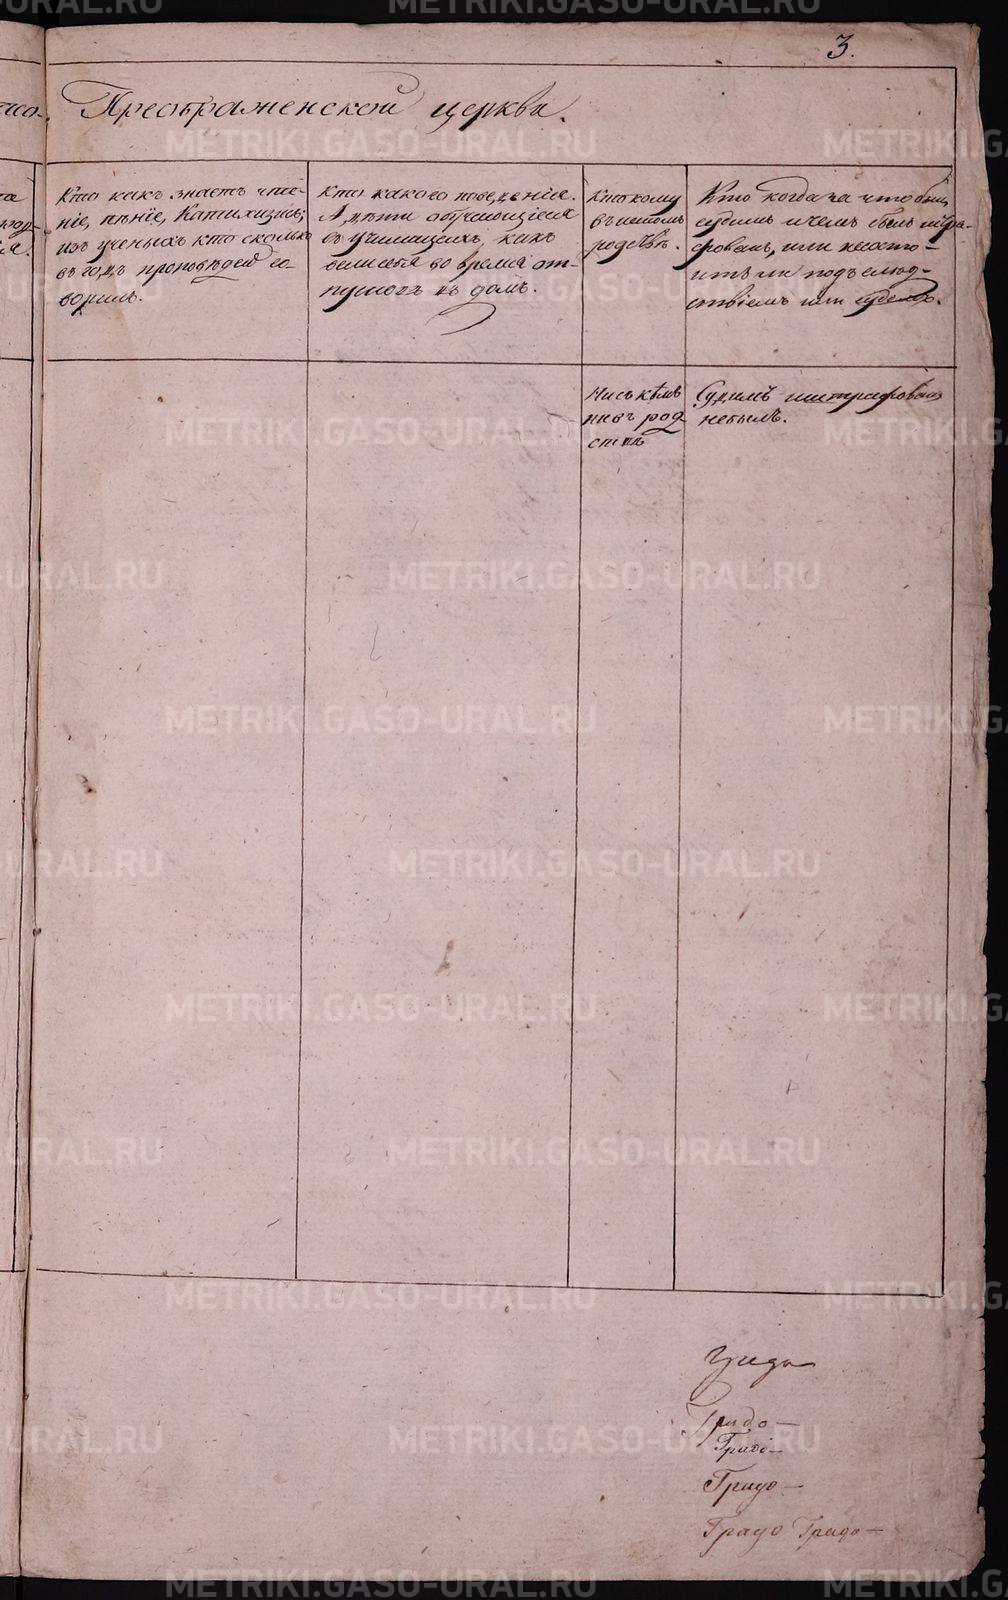 3.
Преображенской церкви.
Кто какъ знаетъ чте-
нiе, пѣнiе, Катихизисъ;
изъ ученыхъ кто сколько
въ годъ проповѣдей го-
ворилъ.
Кто какого поведенiя.
А дѣти обучающiеся
въ училищахъ, какъ
вели себя во время от-
пусковъ въ домъ.
Кто кому
въ какомъ
родствѣ.
Кто когда за что былъ
судимъ и чемъ былъ штра-
фованъ, или не состо-
итъ ли подъ слѣд-
ствiемъ или судомъ.
Ни съ кѣмъ
не въ род
ствѣ
Судимъ и штрафованъ
не былъ.
Градо—
Градо—
Градо—
Градо Градо—
METRIKI.GASO-URAL.RU